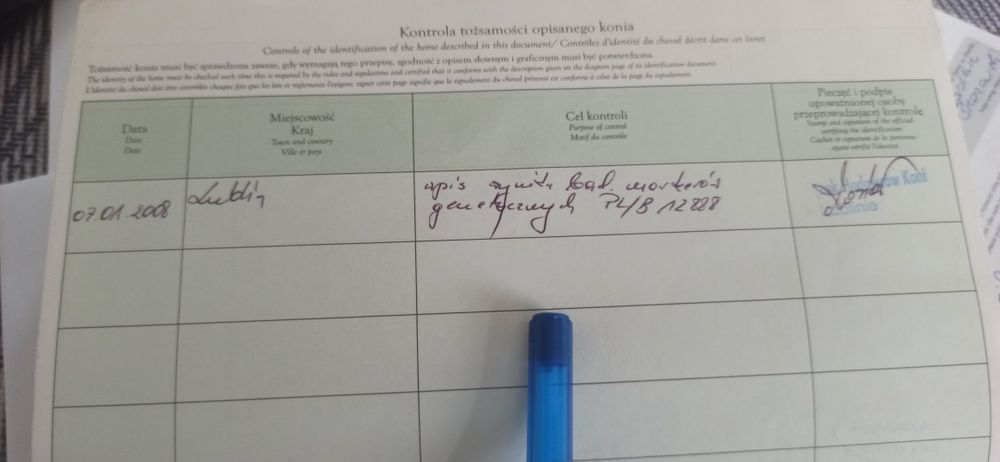 Kontrola tożsamości opisanego konia
Controls of the identification of the horse described in this document/ Contrôles d'identité du cheval décrit dans cet livret
Tożsamość konia musi być sprawdzona zawsze, gdy wymagają tego przepisy, zgodność z opisem słownym i graficznym musi być potwierdzona.
The identity of the horse must be checked each time this is required by the rules and regulations and certified that it conforms with the description given on the diagram page of its identification document.
L'identité du cheval doit être contrôlée chaque fois que les lois et règlements l'exigent: signer cette page signifie que le signalement du cheval présenté est conforme à celui de la page du signalement.
Data
Date
Date
Miejscowość
Kraj
Town and country
Ville et pays
Cel kontroli
Purpose of control
Motif du contrôle
Pieczęć i podpis
upoważnionej osoby
przeprowadzającej kontrolę
Stamp and signature of the official
verifying the identification
Cachet et signature de la personne
ayant vérifié l'identité
07.01.2008
Lublin
wpis wyniku bad. markerów
genetycznych PL/B 12888
Koni